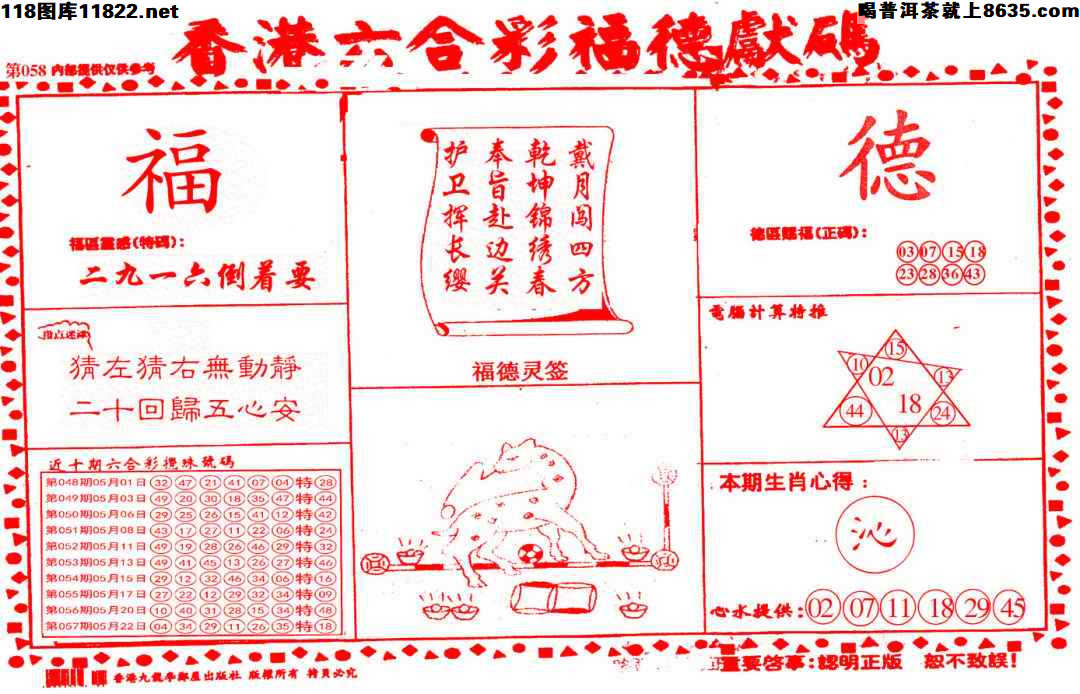 118图库11822.net
喝普洱茶就上8635.com
香港六合彩福德獻碼
第058 内部提供仅供参考
福
福區靈感(特碼):
二九一六倒着要
指点迷津
猜左猜右無動靜
二十回歸五心安
近十期六合彩攪珠號碼
第048期05月01日 32 47 21 41 07 04 特 28
第049期05月03日 49 20 30 18 35 47 特 44
第050期05月06日 29 25 26 15 41 12 特 42
第051期05月08日 43 17 27 11 22 06 特 24
第052期05月11日 49 19 28 26 46 29 特 32
第053期05月13日 49 41 45 13 26 27 特 46
第054期05月15日 29 12 32 46 34 06 特 16
第055期05月17日 27 22 12 29 32 34 特 09
第056期05月20日 10 40 31 28 15 34 特 48
第057期05月22日 04 34 29 11 26 35 特 18
戴月闯四方
乾坤锦绣春
奉旨赴边关
护卫挥长缨
福德灵签
德
德區賜福(正碼):
03 07 15 18
23 28 36 43
電腦計算特推
15
10
02
13
44
18
24
13
本期生肖心得:
沁
心水提供: 02 07 11 18 29 45
香港九龍李鄰屋出版社 版權所有 拷貝必究
重要启事:認明正版 恕不致誤!